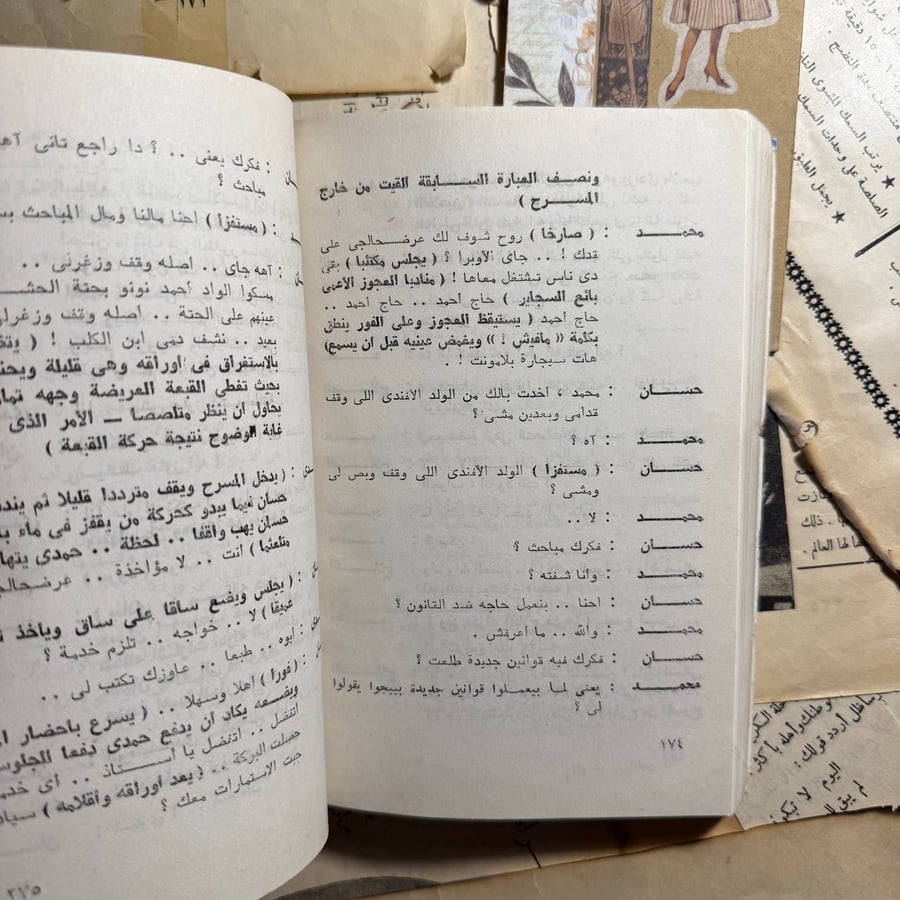 ونصف العبارة السابقة القيت من خارج
المسرح )
محمد : ( صارخا ) روح شوف لك عرضحالجى على
قدك ! .. جاى الأوبرا ؟ ( يجلس مكتئبا ) بقى
دى ناس تشتغل معاها ! ( مناديا العجوز الأعمى
بائع السجاير ) حاج احمد .. حاج احمد ..
حاج احمد ( يستيقظ العجوز وعلى الفور ينطق
بكلمة (( مافيش ! )) ويغمض عينيه قبل ان يسمع)
هات سيجارة بلامونت ! .
حسان : محمد ، أخدت بالك من الولد الافندى اللى وقف
قدامى وبعدين مشى ؟
محمد : آه ؟
حسان : ( مستفزا ) الولد الأفندى اللى وقف وبص لى
ومشى ؟
محمد : لا ..
حسان : فكرك مباحث ؟
محمد : وانا شفته ؟
حسان : احنا .. بنعمل حاجه ضد القانون ؟
محمد : والله .. ما أعرفش .
حسان : فكرك فيه قوانين جديدة طلعت ؟
محمد : يعنى لما بيعملوا قوانين جديدة بييجوا يقولوا
لى ؟
١٧٤
: فكرك يعنى .. ؟ دا راجع تانى آهه
مباحث ؟
: ( مستفزا ) احنا مالنا ومال المباحث
: آهه جاى .. أصله وقف وزغرلى ..
مسكوا الواد أحمد نونو بحتة
عينهم على الحتة .. أصله وقف
بعيد .. نشف دمى ابن الكلب ! (
بالاستغراق فى أوراقه وهى قليلة
بحيث تغطى القبعة العريضة وجهه
يحاول ان ينظر متلصصا — الأمر الذى
غاية الوضوح نتيجة حركة القبعة )
: ( يدخل المسرح ويقف مترددا قليلا ثم
حسان فيما يبدو كحركة من يقفز فى ماء
حسان يهب واقفا .. لحظة .. حمدى
متلعثما ) أنت .. لا مؤاخذة ..
: ( يجلس ويضع ساقا على ساق وياخذ
عميقا ) لا .. خواجه .. تلزم خدمة ؟
: أيوه .. طبعا .. عاوزك تكتب لى ..
: ( فورا ) أهلا وسهلا .. ( يسرع باحضار
ويضعه يكاد ان يدفع حمدى دفعا للجلوس
اتفضل .. اتفضل يا أستاذ .. أى
حصلت البركة .. ( يعد أوراقه وأقلامه )
جبت الاستمارات معك ؟
٢١٥
١٥ دقيقة
النضج .
★ يرتب السمك
★ يجمل
. ذلك
العالم .
اليوم